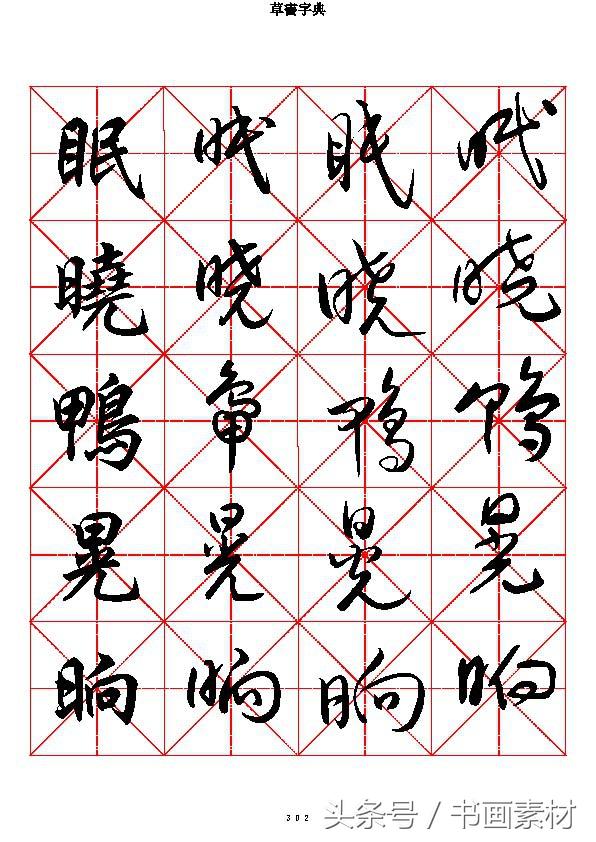 草書字典
眠 眠 眠 眠
曉 曉 曉 曉
鴨 鴨 鴨 鴨
晃 晃 晃 晃
晌 晌 晌 晌
302
头条号 / 书画素材